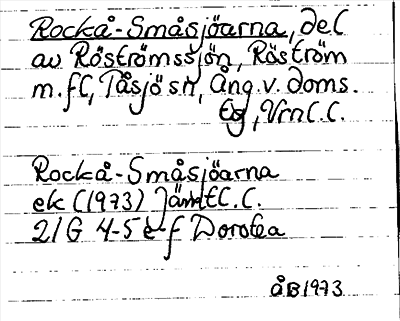 Rockå-Småsjöarna, del
av Röströmssjön, Röström
m.fl, Tåsjö sn, Ång. v. doms.
Og, Vrnl. l.
Rockå-Småsjöarna
ek (1973) Jämtl. l.
21G 4-5 e-f Dorotea
ÅB 1973